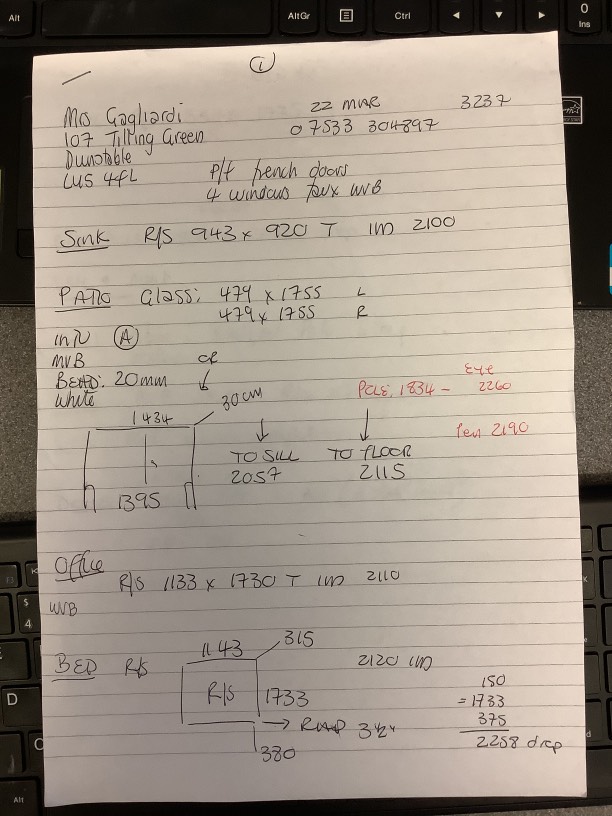 Alt
AltGr
Ctrl
0
Ins
1
Mrs Gagliardi
22 MAR
3237
107 Tilting Green
07533 304897
Dunstable
LU5 4FL
P/f french doors
4 windows
Sink R/S 943 x 920 T IN 2100
PATIO Glass: 479 x 1755 L
479 x 1755 R
A
MVB
OR
BEAD: 20mm
white
30cm
POLE, 1834 - Eye 2260
1434
TO SILL
TO FLOOR
2190
2057
2115
1395
Office
R/S 1133 x 1730 T IN 2110
WVB
$
4
BED R/S
1143
315
2120 IN
R/S
1733
150
= 1733
375
2258 drop
380
D
Alt